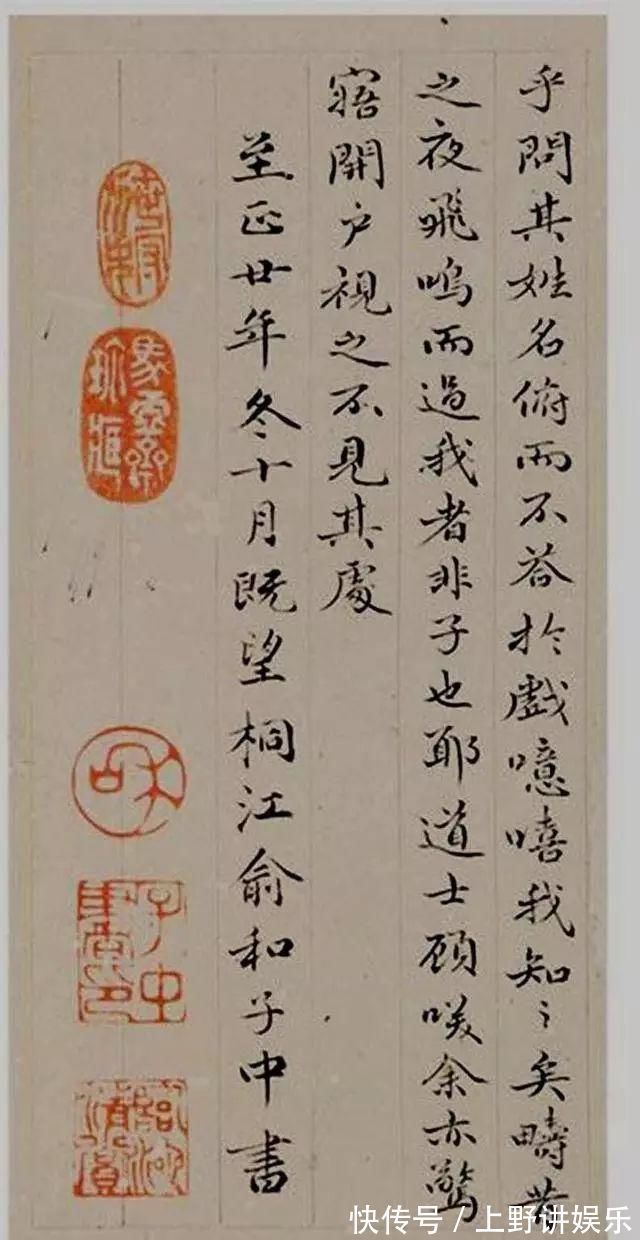 乎問其姓名俯而不荅於戲噫嘻我知之矣疇昔
之夜飛鳴而過我者非子也耶道士顧咲余亦驚
寤開户視之不見其處
至正廿年冬十月既望桐江俞和子中書
快传号/上野讲娱乐